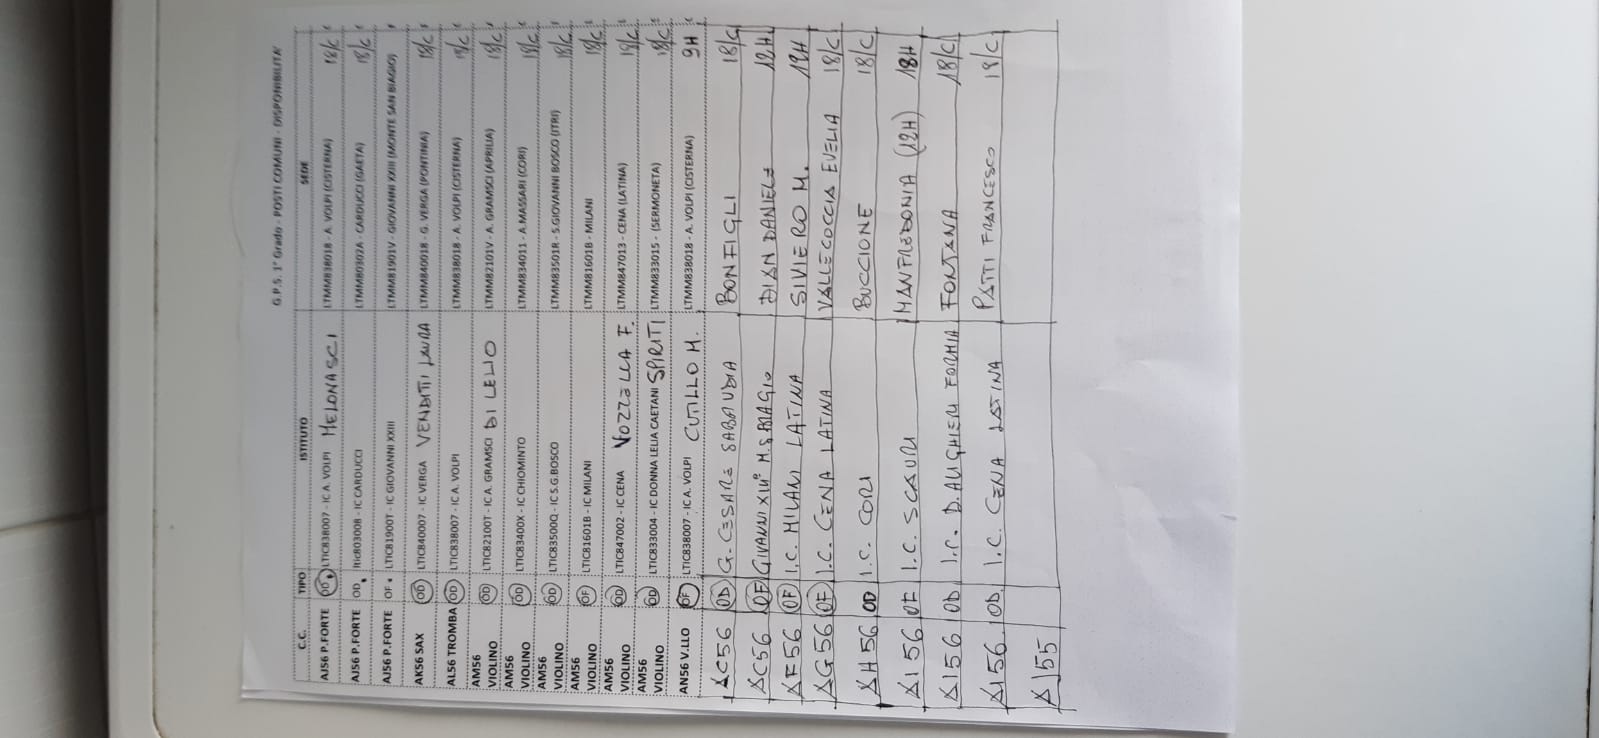 G.P.S. 1° Grado - POSTI COMUNI - DISPONIBILITA'
C.C. TIPO ISTITUTO SEDE
AJ56 P.FORTE OD LTIC838007 - IC A. VOLPI MELONASCI LTMM838018 - A. VOLPI (CISTERNA) 18/C
AJ56 P.FORTE OD ltic80300B - IC CARDUCCI LTMM80302A - CARDUCCI (GAETA) 18/C
AJ56 P.FORTE OF LTIC81900T - IC GIOVANNI XXIII LTMM81901V - GIOVANNI XXIII (MONTE SAN BIAGIO)
AK56 SAX OD LTIC840007 - IC VERGA VENDITI LAURA LTMM840018 - G. VERGA (PONTINIA) 18/C
AL56 TROMBA OD LTIC838007 - IC A. VOLPI LTMM838018 - A. VOLPI (CISTERNA) 18/C
AM56 VIOLINO OD LTIC82100T - IC A. GRAMSCI DI LELIO LTMM82101V - A. GRAMSCI (APRILIA) 18/C
AM56 VIOLINO OD LTIC83400X - IC CHIOMINTO LTMM834011 - A.MASSARI (CORI) 18/C
AM56 VIOLINO OD LTIC83500Q - IC S.G.BOSCO LTMM83501R - S.GIOVANNI BOSCO (ITRI) 18/C
AM56 VIOLINO OF LTIC81601B - IC MILANI LTMM81601B - MILANI 18/C
AM56 VIOLINO OD LTIC847002 - IC CENA NOZZELLA F. LTMM847013 - CENA (LATINA) 18/C
AM56 VIOLINO OD LTIC833004 - IC DONNA LELIA CAETANI SPIRITI LTMM833015 - (SERMONETA) 18/C
AN56 V.LLO OF LTIC838007 - IC A. VOLPI CUTILLO M. LTMM838018 - A. VOLPI (CISTERNA) 9H
AC56 OD G. CESARE SABAUDIA BONFIGLI 18/C
AC56 OF GIVANNI XIII° M.S.BIAGIO DIAN DANIELE 12H
AF56 OF I.C. MILANI LATINA SIVIERO M. 12H
AG56 OF I.C. CENA LATINA VALLECOCCIA EVELIA 18/C
AH56 OD I.C. CORI BUCCIONE 18/C
AI56 OF I.C. SCAURI MANFREDONIA (12H) 18H
AI56 OD I.C. D. ALIGHIERI FORMIA FONTANA 18/C
AI56 OD I.C. CENA LATINA PATTI FRANCESCO 18/C
AJ55